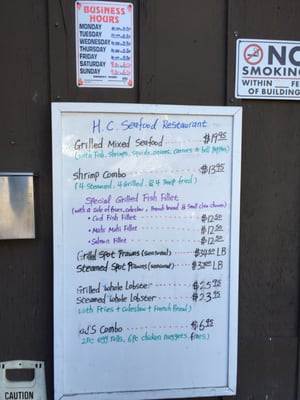 BUSINESS
HOURS
MONDAY
TUESDAY
WEDNESDAY
THURSDAY
FRIDAY
SATURDAY
SUNDAY
NO
SMOKING
WITHIN FEET
OF BUILDING
H.C. Seafood Restaurant
Grilled Mixed Seafood $19.95
(with Fish, Shrimps, Squids, onions, carrots & bell peppers)
Shrimp Combo $13.95
(4 Steamed, 4 Grilled, & 4 Shrimp fried)
Special Grilled Fish Fillet
(with a side of fries, coleslaw, French bread & Small Clam chowder)
• Cod Fish Fillet $12.50
• Mahi Mahi Fillet $12.50
• Salmon Fillet $12.50
Grilled Spot Prawns (seasoned) LB
Steamed Spot Prawns (seasoned) LB
Grilled Whole Lobster $25.95
Steamed Whole Lobster $23.95
with Fries + Coleslaw + French Bread)
Kid'S Combo $6.95
2pc egg rolls, 6pc chicken nuggets, fries)
CAUTION